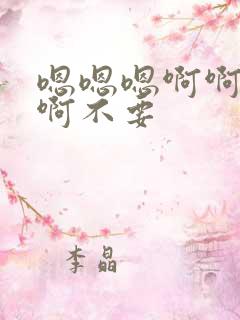 嗯嗯嗯啊啊
啊不要
李晶